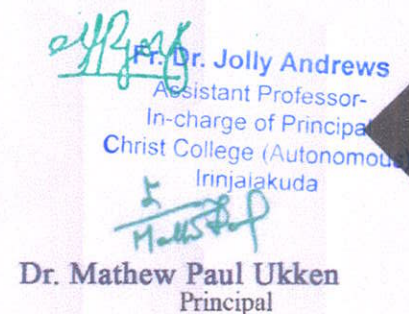 Fr. Dr. Jolly Andrews
Assistant Professor-
In-charge of Principal
Christ College (Autonomous
Irinjalakuda
Dr. Mathew Paul Ukken
Principal